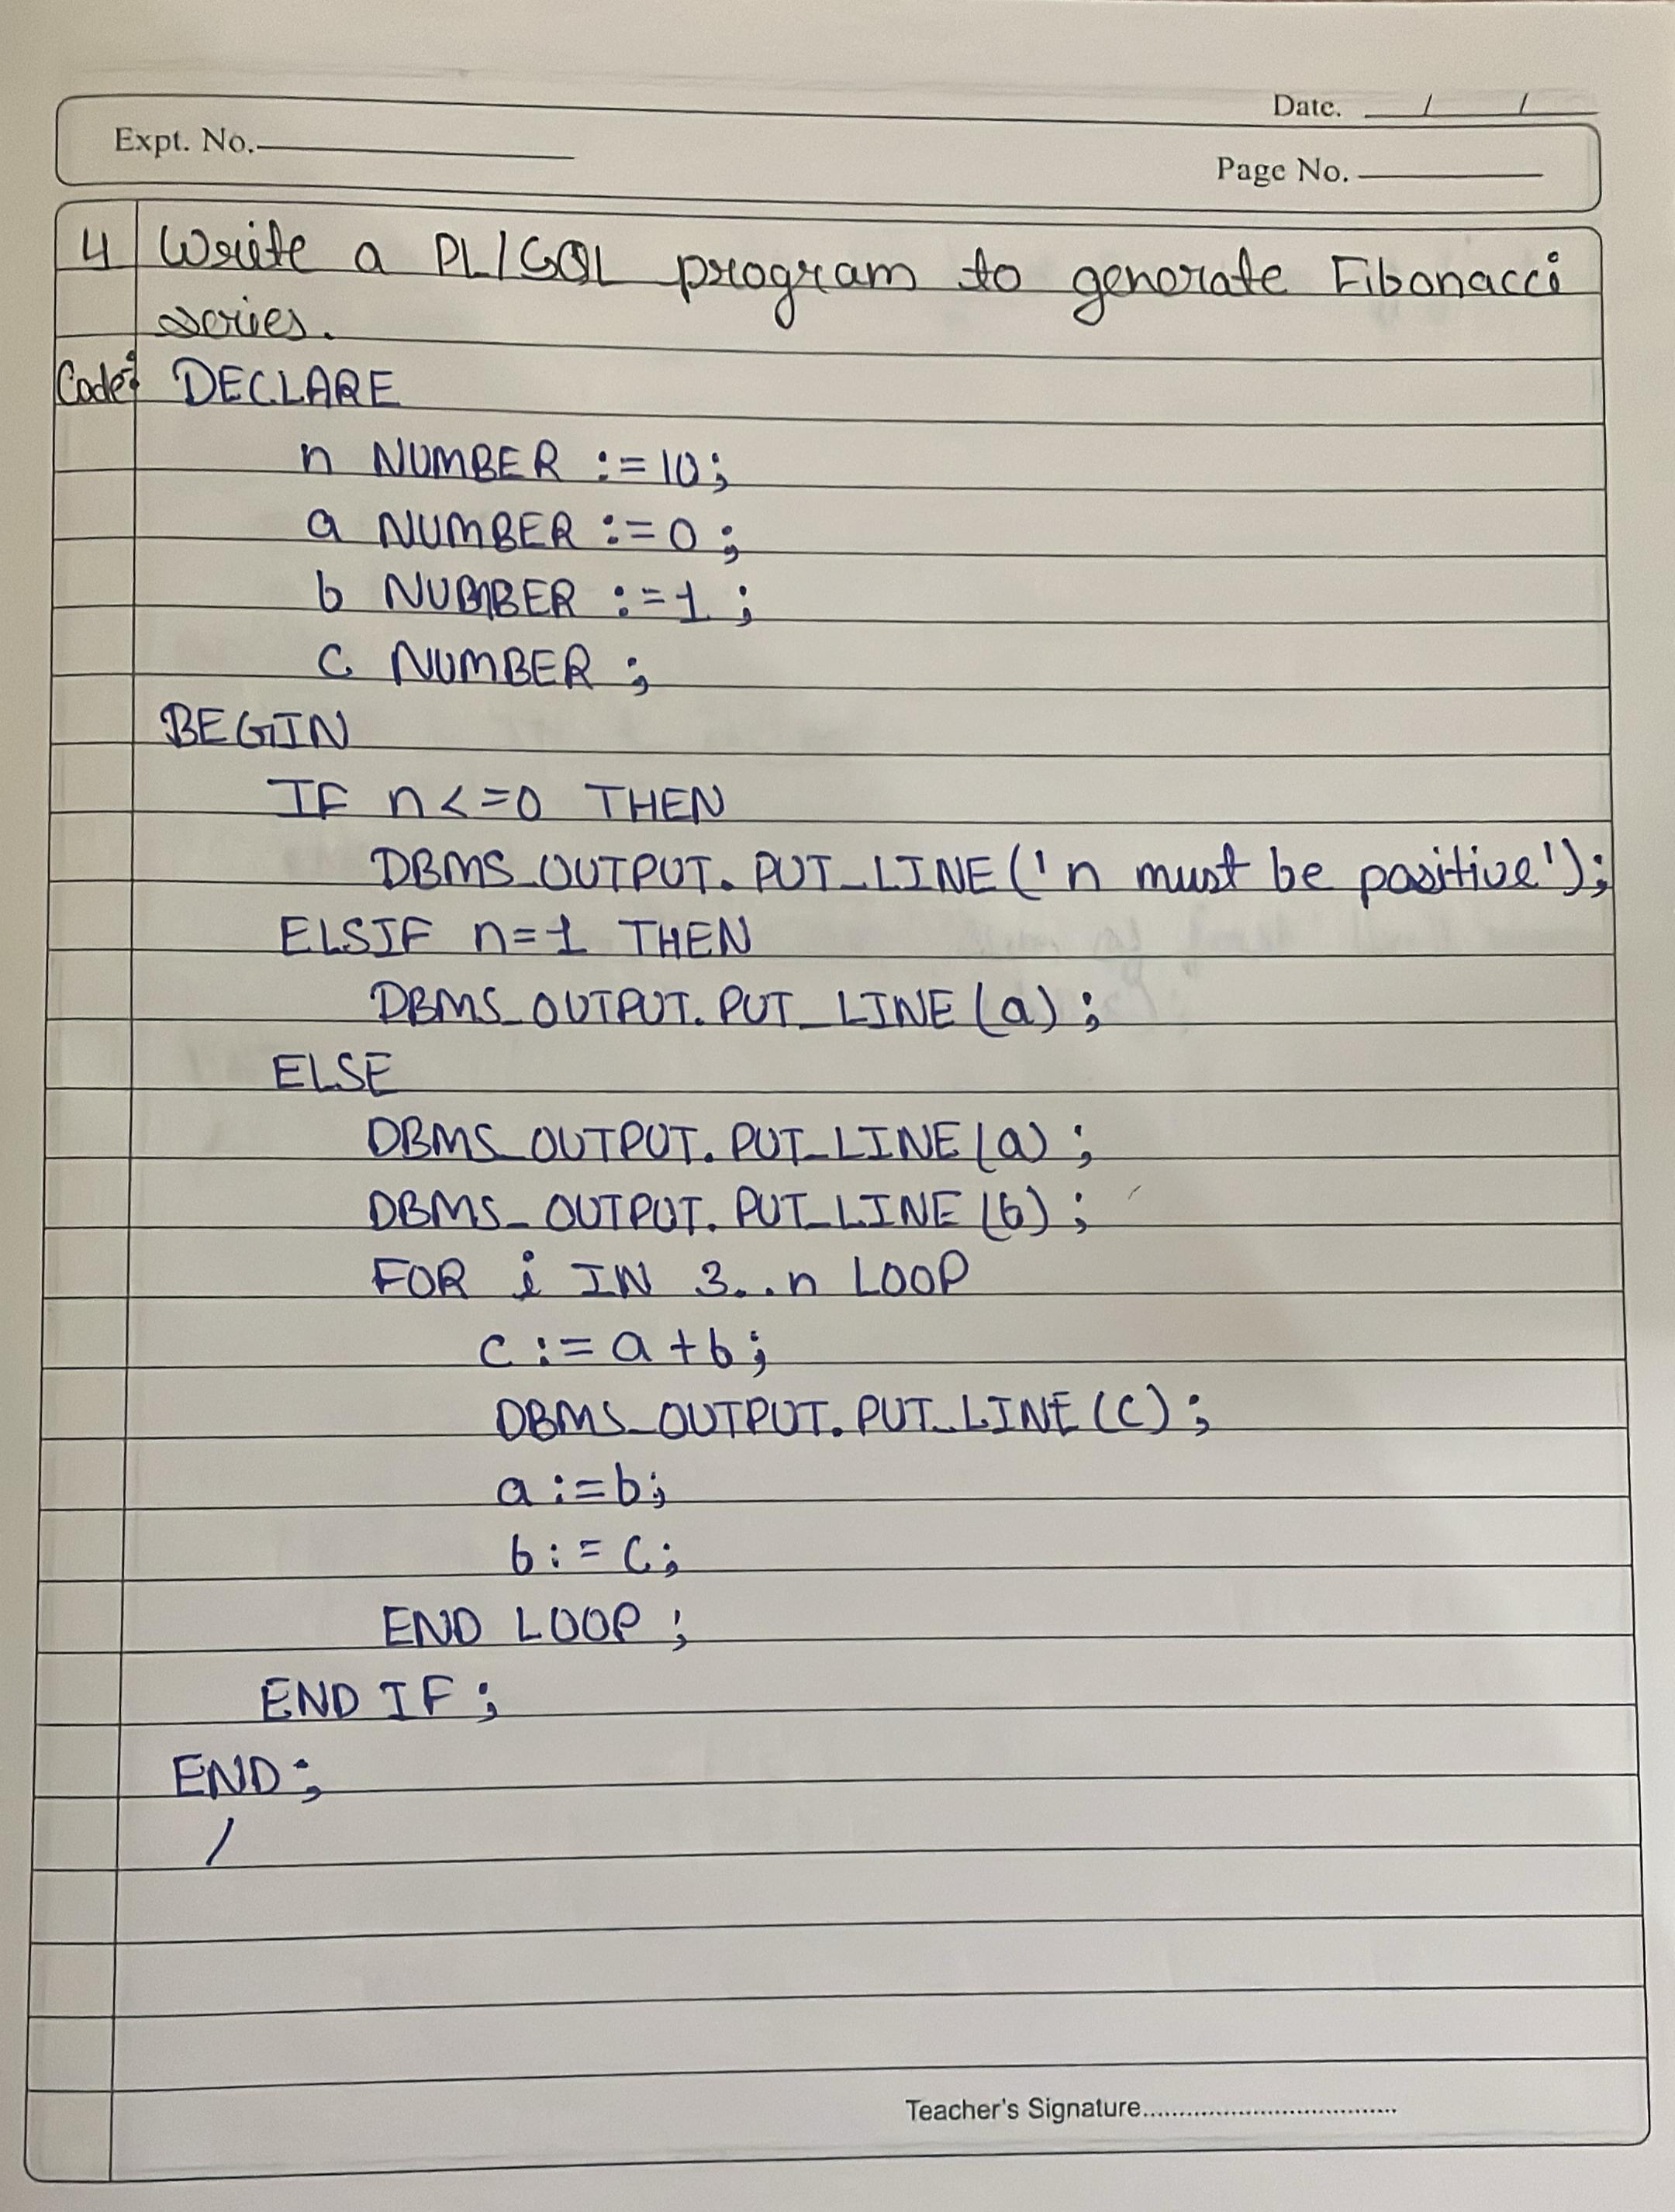 Date. / /
Expt. No.
Page No.
4 Write a PL/SQL program to generate Fibonacci
series.
Code: DECLARE
n NUMBER := 10;
a NUMBER := 0;
b NUMBER := 1;
c NUMBER;
BEGIN
IF n <= 0 THEN
DBMS_OUTPUT.PUT_LINE('n must be positive');
ELSIF n=1 THEN
DBMS_OUTPUT.PUT_LINE(a);
ELSE
DBMS_OUTPUT.PUT_LINE(a);
DBMS_OUTPUT.PUT_LINE(b);
FOR i IN 3..n LOOP
c := a+b;
DBMS_OUTPUT.PUT_LINE(c);
a := b;
b := c;
END LOOP;
END IF;
END;
/
Teacher's Signature..................................